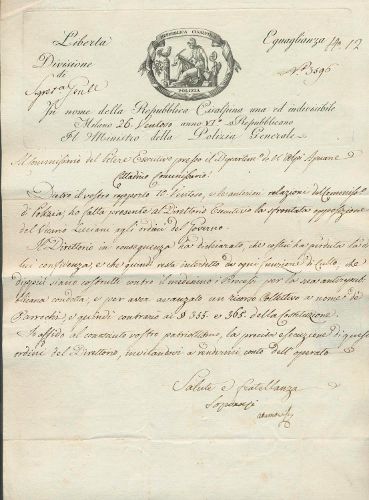 Libertà
Eguaglianza
12
REPUBBLICA CISALPINA
POLIZIA
Divisione
di
N.º 3696
In nome della Repubblica Cisalpina una ed indivisibile
Milano 26 Ventoso anno VI.º Repubblicano
Il Ministro della Polizia Generale
Al Commissario del Potere Esecutivo presso il Dipartim. d'Alpi Apuane
Cittadino Commissario!
Dietro il vostro rapporto 10 Ventoso, relazione del Commiss.º
di Polizia, ho fatta presente al Direttorio Esecutivo la sfrontata opposizione
del Vicario Luciani agli ordini del Governo.
Il Direttorio in conseguenza ha dichiarato, che costui ha perduta la di
lui confidenza, e che quindi resta interdetto da ogni funzione di Culto, che
siano contro il medesimo i Processi per la sua antirepub-
blicana condotta, e per aver avanzato un ricorso Collettivo a nome de'
Parrochi, e quindi contrario ai § 355 e 365 della Costituzione.
Io affido al conosciuto vostro patriottismo, la precisa esecuzione di quest'
ordine del Direttorio, invitandovi a rendermi conto dell'operato
Salute e fratellanza
Sopransi